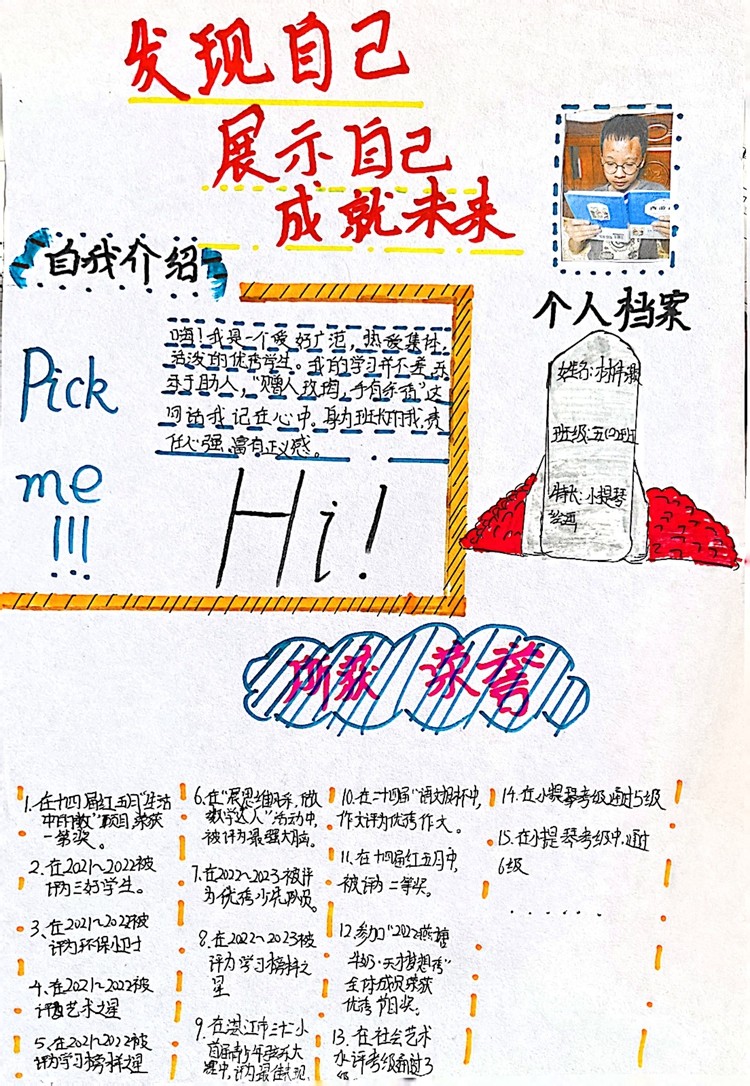 发现自己
展示自己
成就未来
自我介绍
Pick
me
!!!
嗨！我是一个爱好广范，热爱集体，
活泼的优秀学生。我的学习并不差，乐
于助人，“赠人玫瑰，手有余香”这
句话我记在心中。身为班长的我，责
任心强，富有正义感。
Hi!
个人档案
姓名：
班级：五(4)班
特长：小提琴
绘画
所获 荣誉
1.在十四届红五月“生活
中的数”项目，荣获
一等奖。
2.在2021~2022被
评为三好学生。
3.在2021~2022被
评为环保小卫士
4.在2021~2022被
评为艺术之星
5.在2021~2022被
评为学习榜样之星
6.在“展思维风采，做
数学达人”活动中，
被评为最强大脑。
7.在2022~2023被评
为优秀少先队员。
8.在2022~2023被
评为学习榜样之
星
9.在湛江市三十二小
首届青少年弦乐大
赛中，评为最佳表现
10.在二十四届“语文报杯”中，
作文评为优秀作文。
11.在十四届红五月中，
被评为二等奖。
12.参加“2022燕塘
牛奶·天才梦想秀”
全体成员荣获
优秀节目奖。
13.在社会艺术
水评考级通过3
级
14.在小提琴考级通过5级
15.在小提琴考级中，通过
6级
. . . . . .